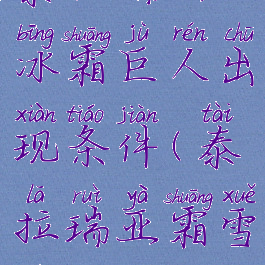 bīng shuāng jù rén chū
冰霜巨人出
xiàn tiáo jiàn tài
现条件(泰
lā ruì yà shuāng xuě
拉瑞亚霜雪